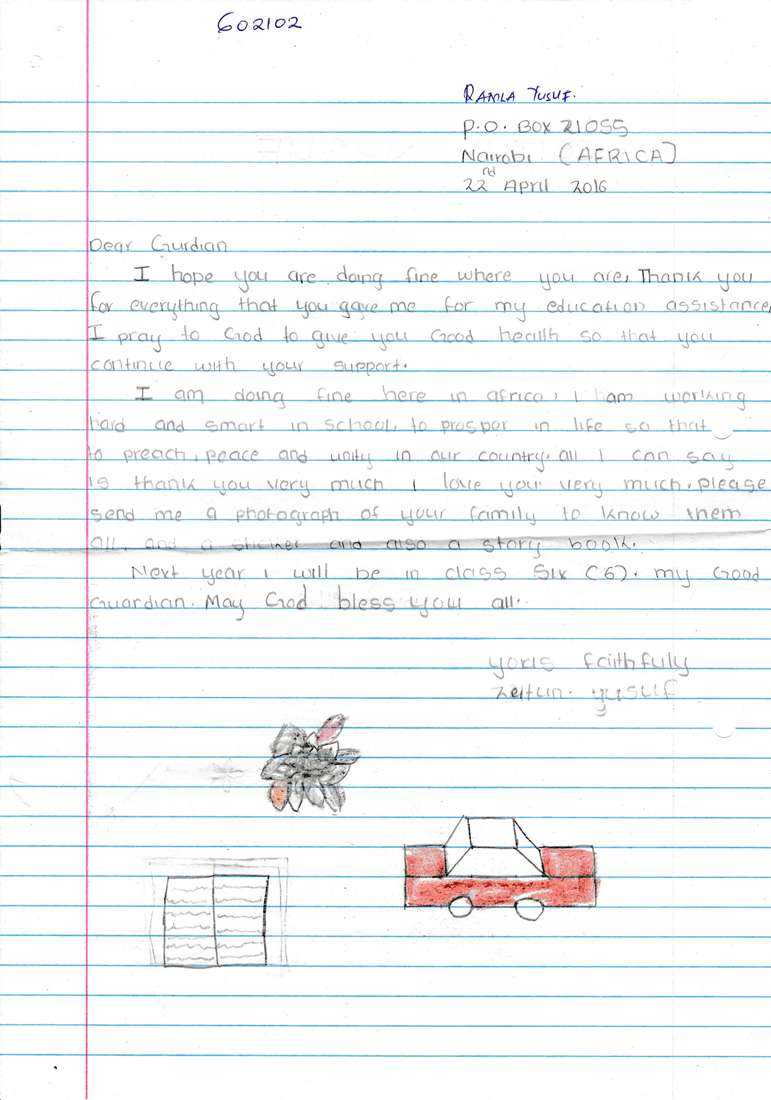 602102
RAMLA YUSUF.
P.O. BOX 21055
Nairobi (AFRICA)
22nd April 2016
Dear Gurdian
I hope you are doing fine where you are, Thank you
for everything that you gave me for my education assistance,
I pray to God to give you Good health so that you
continue with your support.
I am doing fine here in africa, I ham working
hard and smart in school, to prosper in life so that
to preach, peace and unity in our country. all I can say
is thank you very much I love you very much. please
send me a photograph of your family to know them
all, and a sticker and also a story book.
Next year I will be in class Six (6). my Good
Guardian. May God bless you all.
yours faithfuly
Zeitun. yusuf